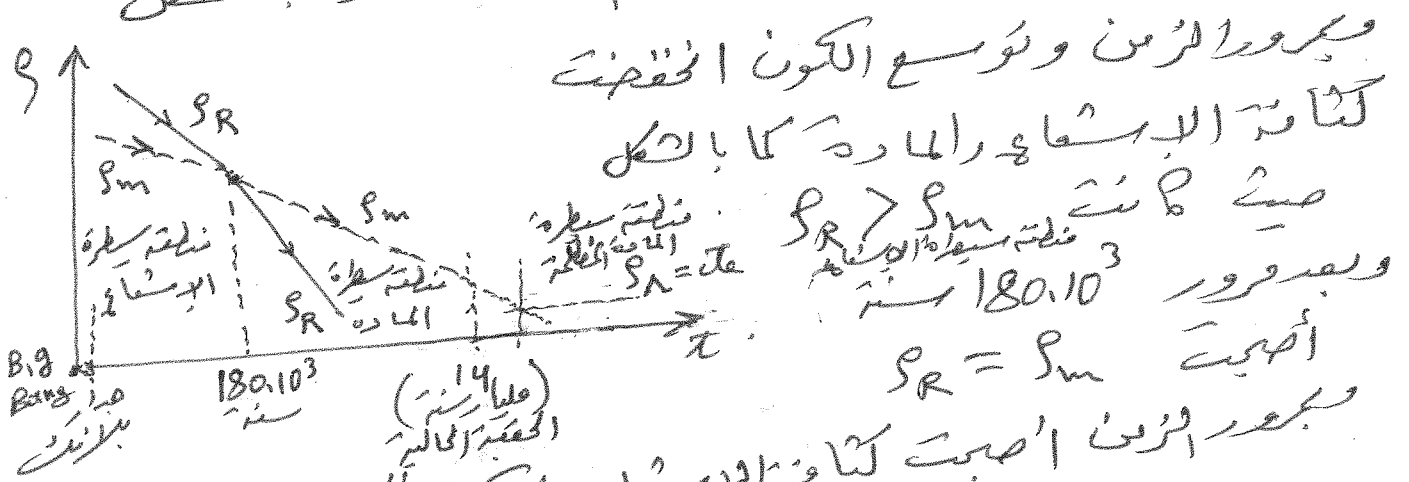 وبمرور الزمن وتوسع الكون انخفضت
كثافة الإشعاع والمادة كما بالشكل
حيث كانت ρR > ρm
منطقة سيطرة الإشعاع
وبعد مرور 180.10³ سنة
أصبحت ρR = ρm
وبمرور الزمن أصبحت كثافة
ρ
ρR
ρm
ρm
منطقة سيطرة
الإشعاع
منطقة سيطرة
المادة
ρR
منطقة سيطرة
المادة المظلمة
ρΛ =
Big
Bang
جدار
بلانك
180.10³
سنة
14
(مليار سنة)
الحقبة الحالية